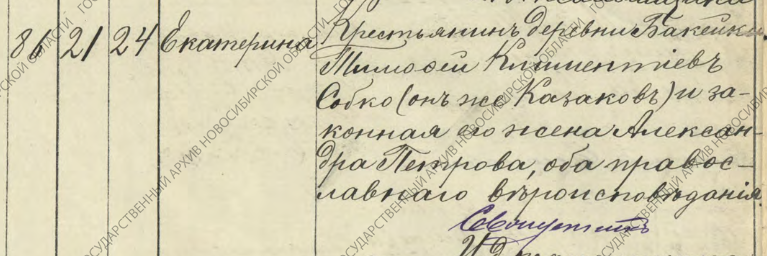 86 21 24 Екатерина Крестьянинъ деревни Бакейки,
Тимофей Климентіевъ
Собко (онъ же Казаковъ) и за-
конная его жена Алексан-
дра Петрова, оба правос-
лавнаго вѣроисповѣданія.
ГОСУДАРСТВЕННЫЙ АРХИВ НОВОСИБИРСКОЙ ОБЛАСТИ